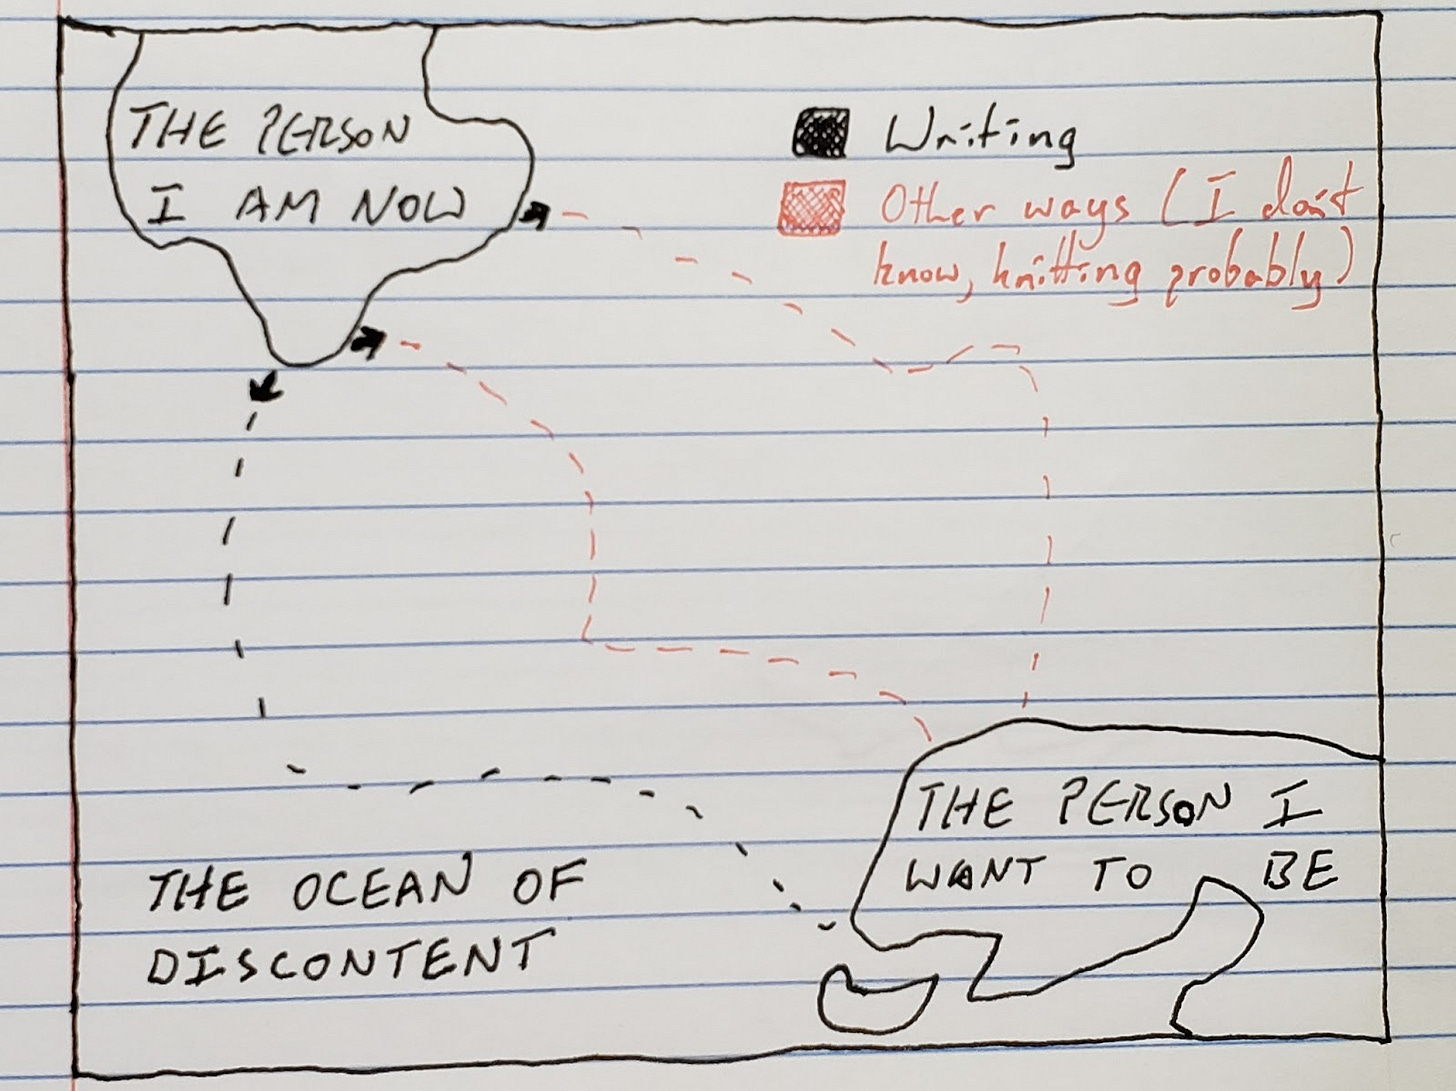 THE PERSON
I AM NOW
Writing
Other ways (I don't
know, knitting probably)
THE PERSON I
WANT TO BE
THE OCEAN OF
DISCONTENT